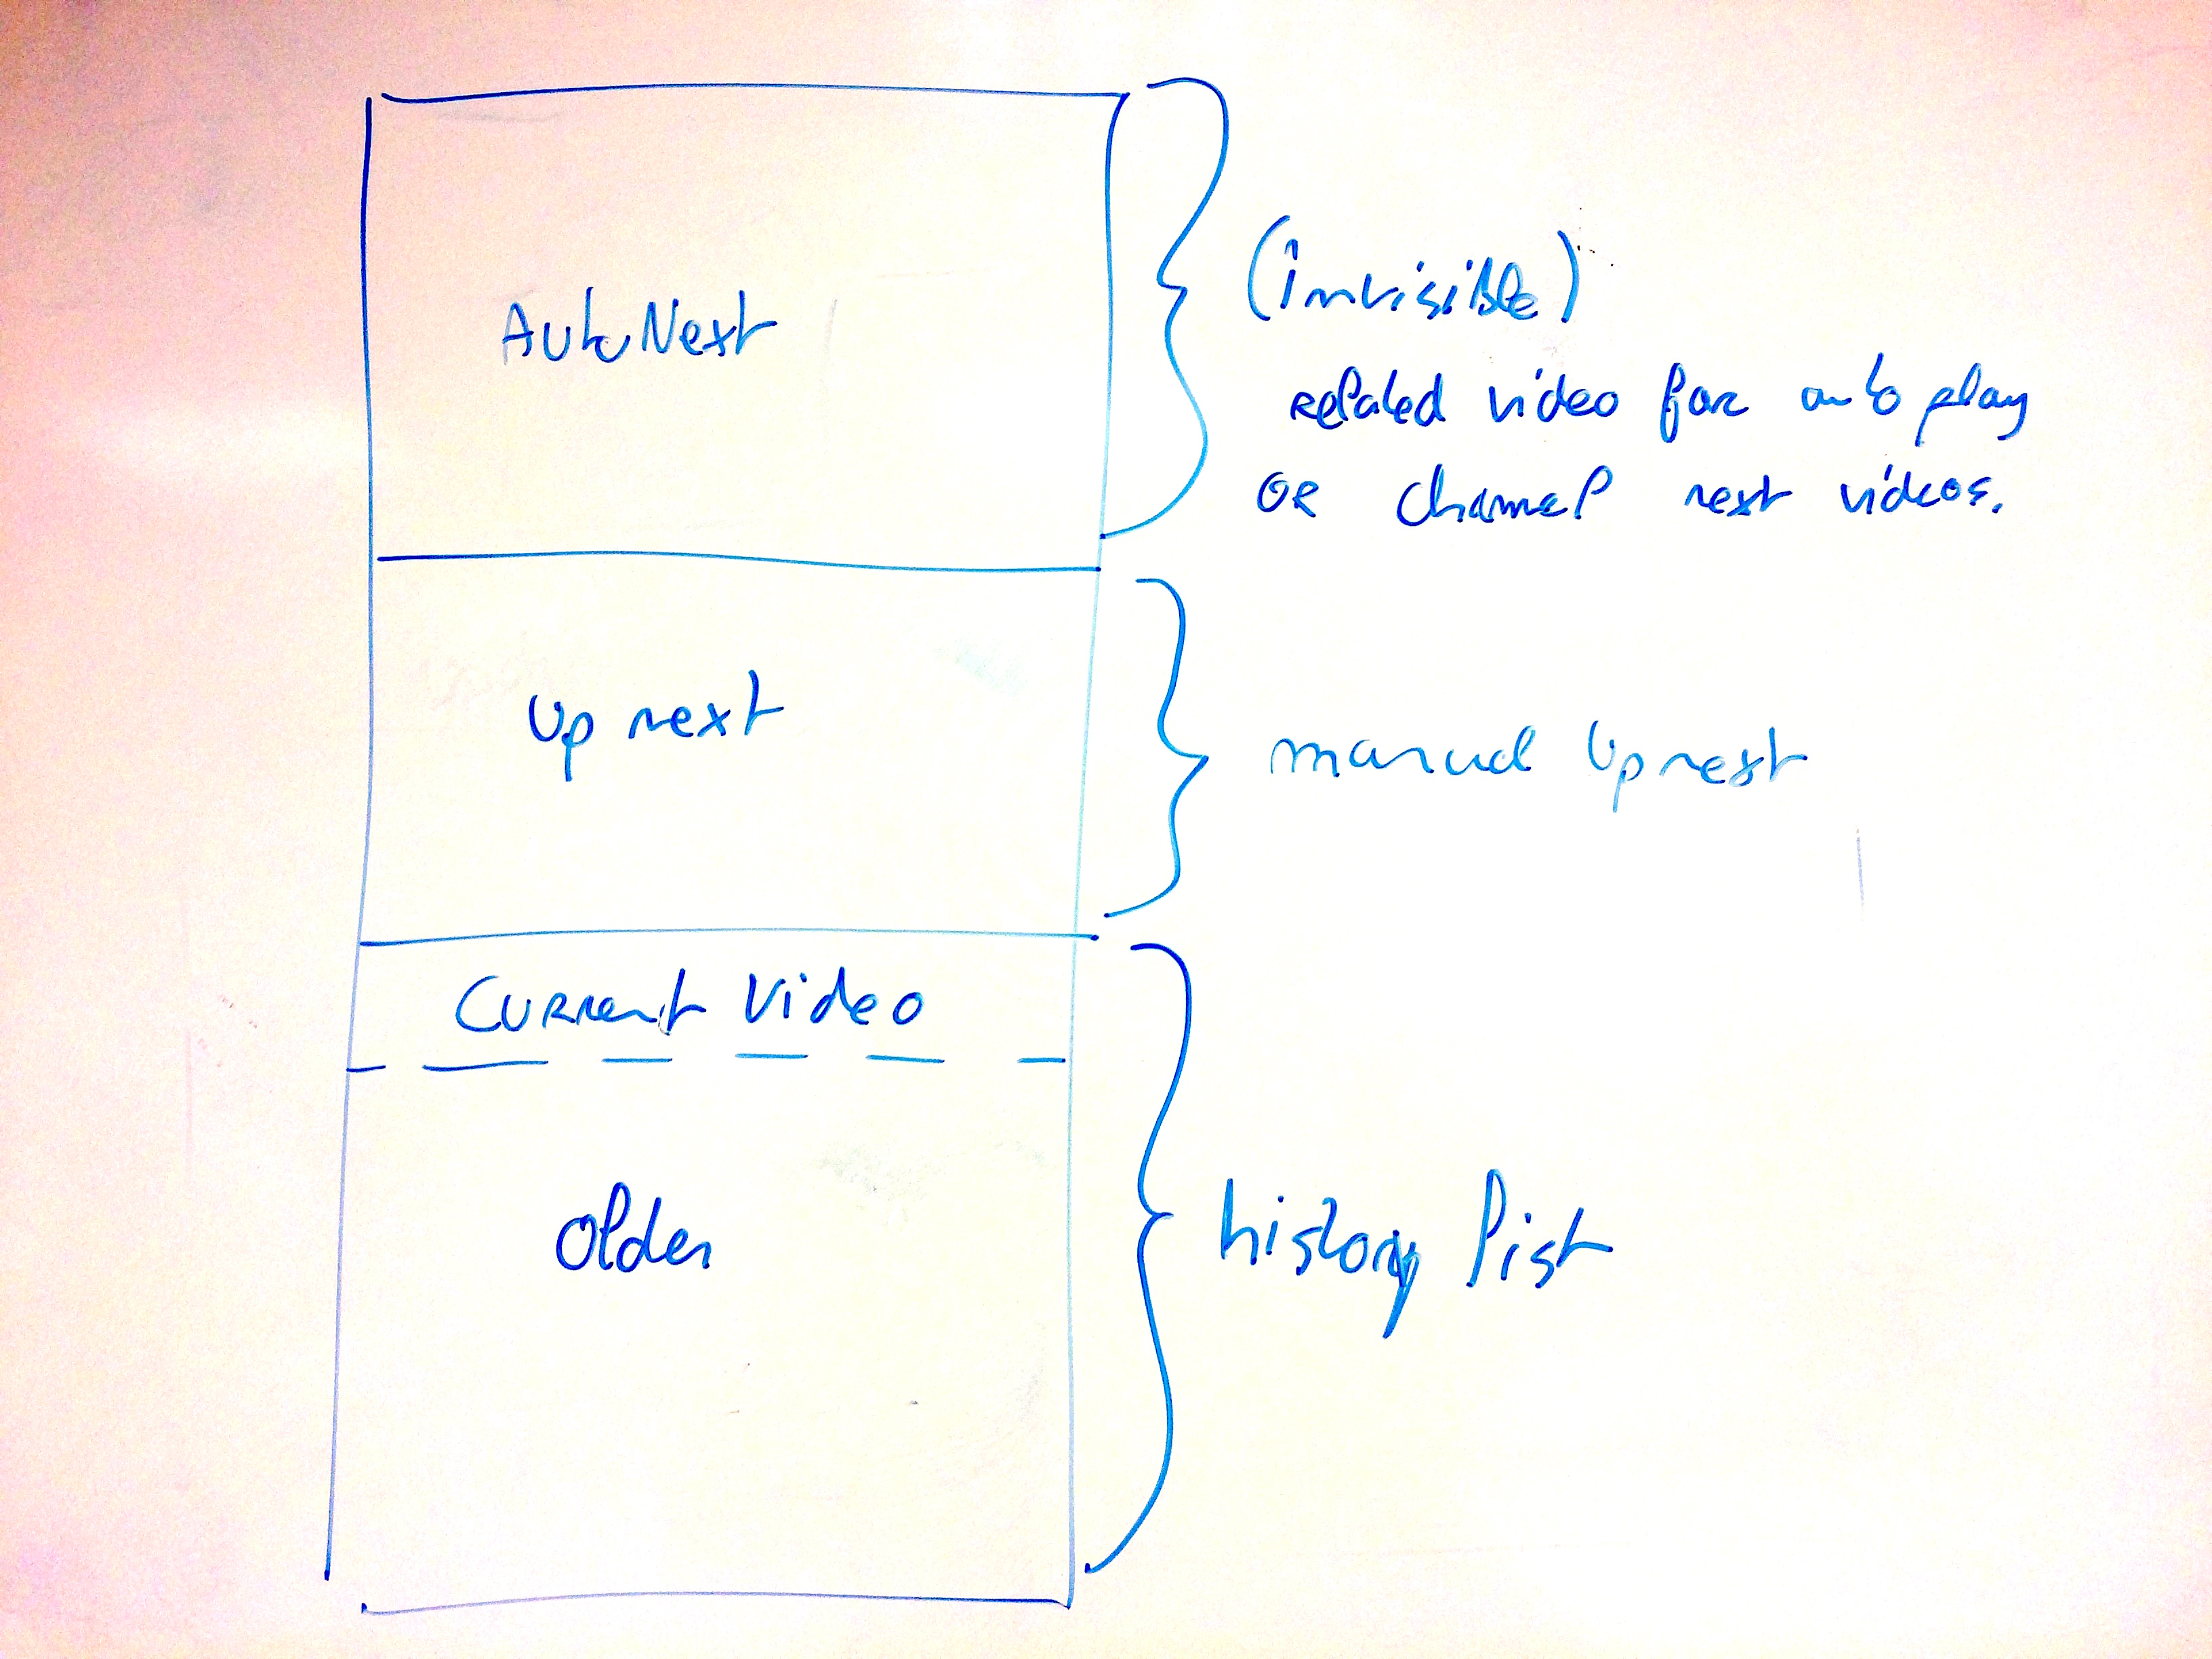 AutoNext
(invisible)
related video for auto play
OR channel next videos.
Up next
manual Up next
Current Video
Older
history list